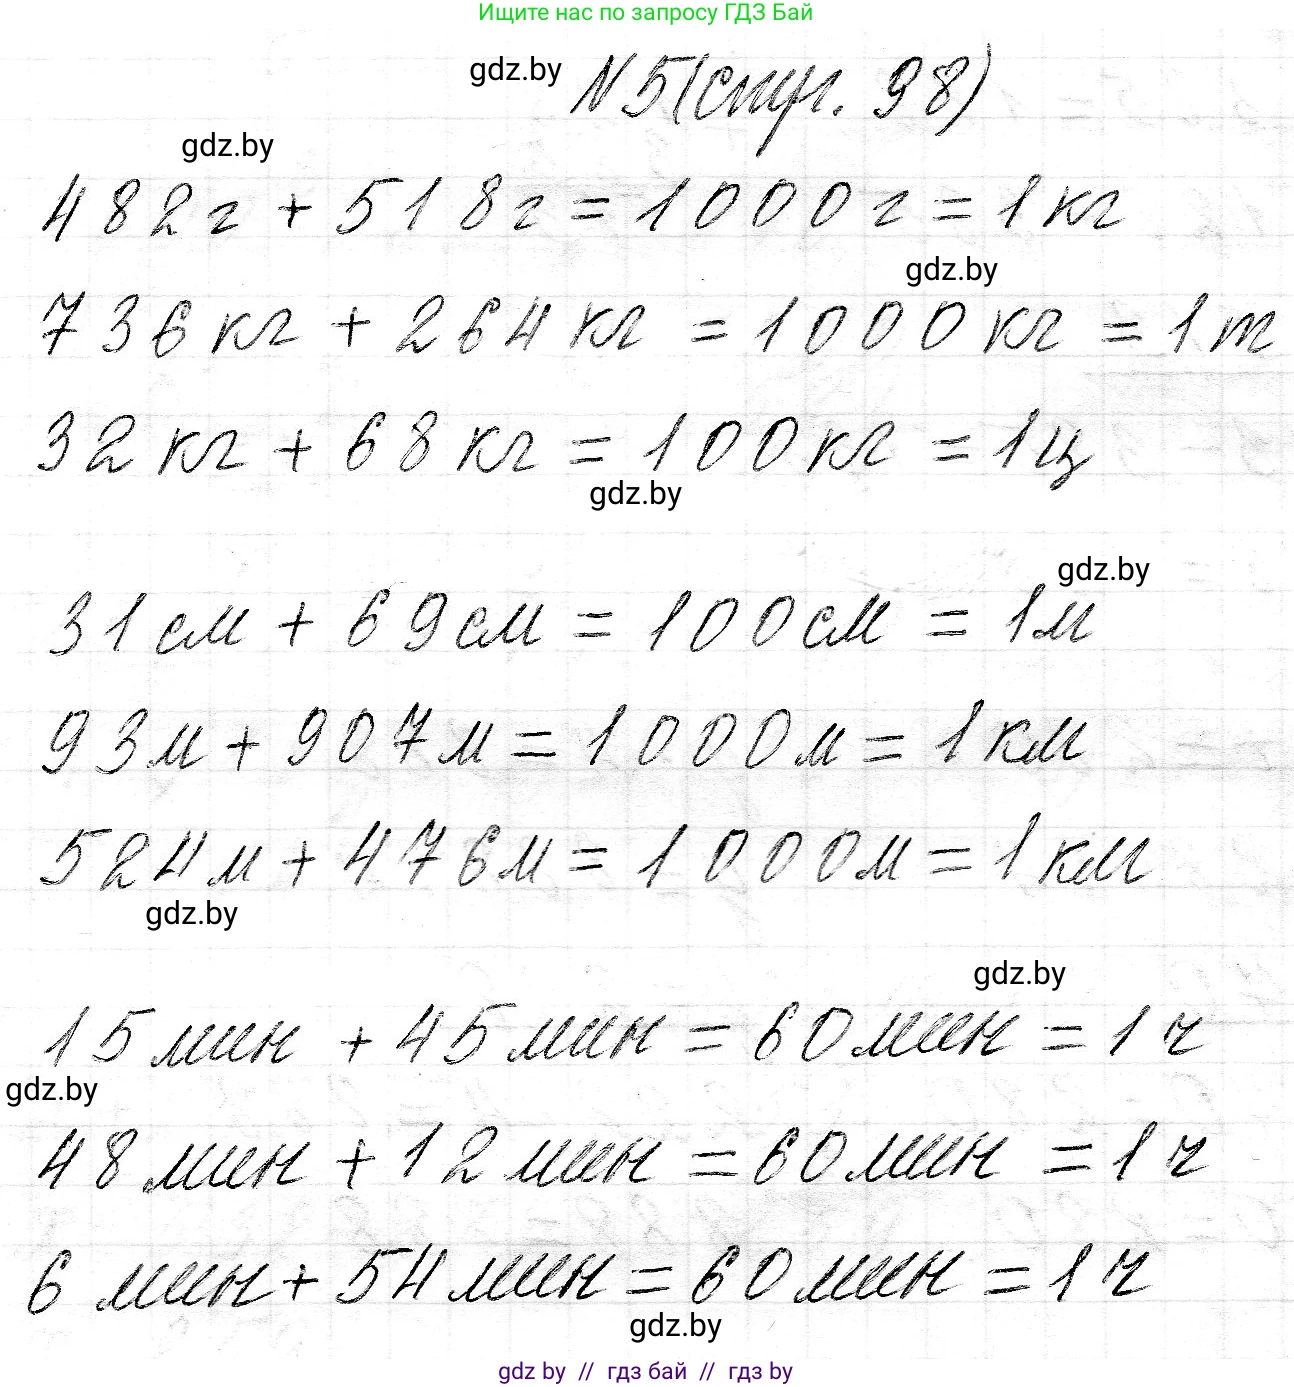 Ищите нас по запросу ГДЗ Бай
gdz.by
N5(стр. 98)
gdz.by
482г + 518г = 1000г = 1кг
gdz.by
736кг + 264кг = 1000кг = 1т
32кг + 68кг = 100кг = 1ц
gdz.by
gdz.by
31см + 69см = 100см = 1м
93м + 907м = 1000м = 1км
524м + 476м = 1000м = 1км
gdz.by
gdz.by
15мин + 45мин = 60мин = 1ч
gdz.by
48мин + 12мин = 60мин = 1ч
6мин + 54мин = 60мин = 1ч
gdz.by
gdz by // гдз бай // гдз by